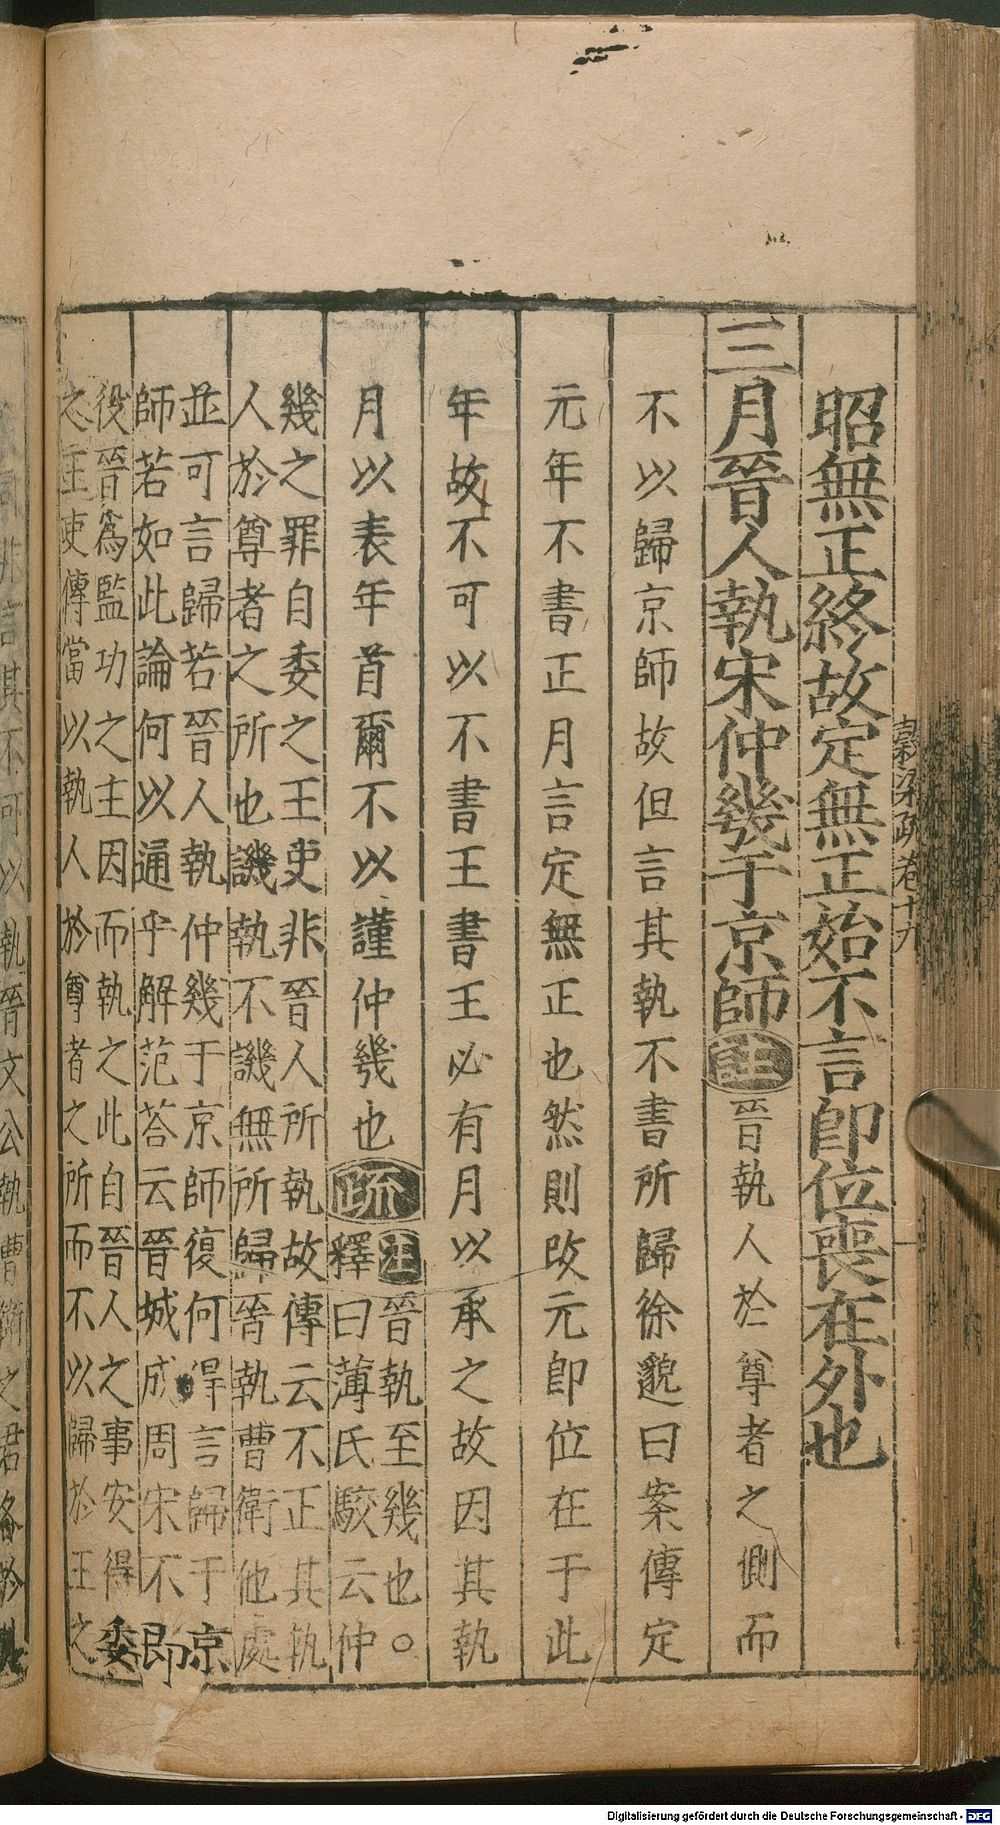 穀梁疏卷十九
昭無正終故定無正始不言卽位喪在外也
三月晉人執宋仲幾于京師註晉執人於尊者之側而
不以歸京師故但言其執不書所歸徐邈曰案傳定
元年不書正月言定無正也然則改元卽位在于此
年故不可以不書王書王必有月以承之故因其執
月以表年首爾不以謹仲幾也疏注晉執至幾也○
釋曰薄氏駮云仲
幾之罪自委之王吏非晉人所執故傳云不正其執
人於尊者之所也譏執不譏無所歸晉執曹衛他處
並可言歸若晉人執仲幾于京師復何得言歸于京
師若如此論何以通乎解范荅云晉城成周宋不卽
役晉為監功之主因而執之此自晉人之事安得委
之王吏傳當以執人於尊者之所而不以歸於王之
言其不可以執晉文公執曹衛之君各於
Digitalisierung gefördert durch die Deutsche Forschungsgemeinschaft - DFG